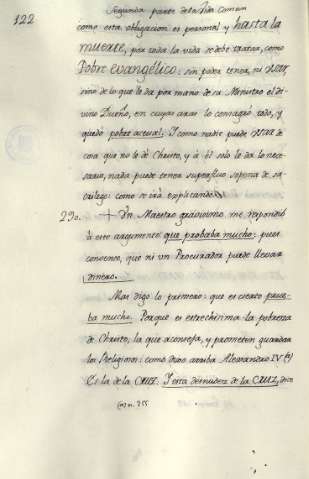 122
Segunda parte de la Vida Comun
como esta obligacion es personal y hasta la
muerte, por toda la vida se debe tratar, como
Pobre evangélico: sin poder tener, ni usar,
sino de lo que le da por mano de su Ministro el di-
vino Dueño, en cuyas aras lo consagro todo, y
quedó pobre actual. Y como nadie puede usar de
cosa que no le dé Christo, y a él solo le da lo nece-
sario, nada puede tener superfluo sopena de sa-
crilego: como se irá explicando.
290. Un Maestro gravissimo me respondió
à este argumento que probaba mucho: pues
convence, que ni un Procurador puede llevar
dinero.
Mas digo lo primero: que es cierto prue-
ba mucho. Porque es estrechissima la pobreza
de Christo, la que aconseja, y prometen guardar
los Religiosos: como dixo arriba Alexandro IV (a)
Es la de la CRUZ. Y esta desnudez de la CRUZ, dice
(a) n. 255